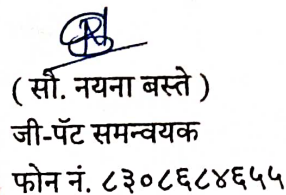 ( सौ. नयना बस्ते )
जी-पॅट समन्वयक
फोन नं. ८३०८६८४६५५